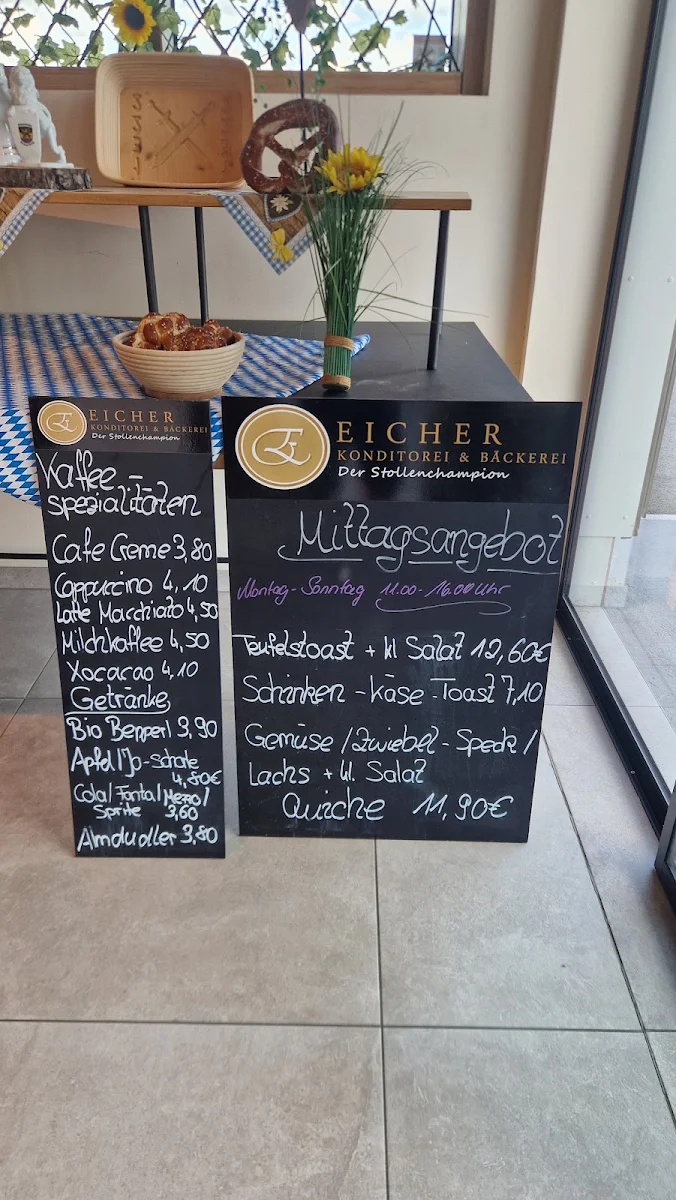 EICHER
KONDITOREI & BÄCKEREI
Der Stollenchampion
Kaffee-
spezialitäten
Cafe Creme 3,80
Cappuccino 4,10
Latte Macchiato 4,50
Milchkaffee 4,50
Xocacao 4,10
Getränke
Bio Bepperl 3,90
Apfel/Jo-Schole
4,80€
Cola/Fanta/Mezzo/
Sprite 3,60
Almdudler 3,80
EICHER
KONDITOREI & BÄCKEREI
Der Stollenchampion
Mittagsangebot
Montag - Sonntag 11.00 - 16.00 Uhr
Teufelstoast + kl Salat 12,60€
Schinken - Käse - Toast 7,10
Gemüse / Zwiebel - Speck /
Lachs + kl. Salat
Quiche 11,90€